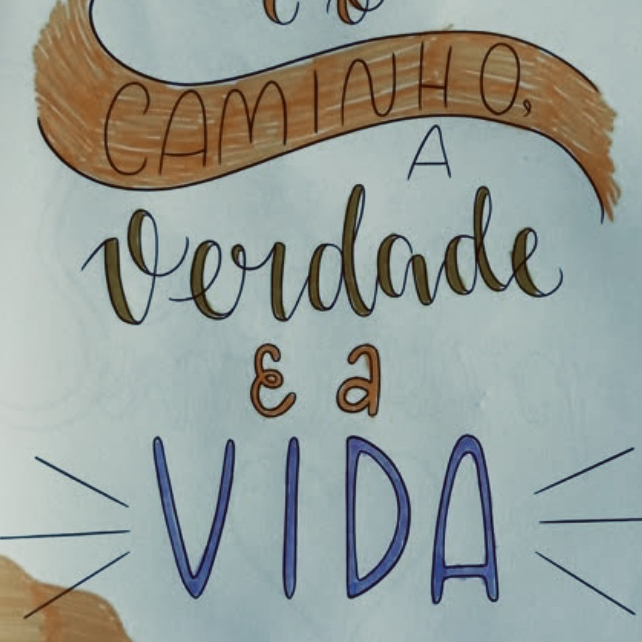 CAMINHO,
A
verdade
E a
VIDA